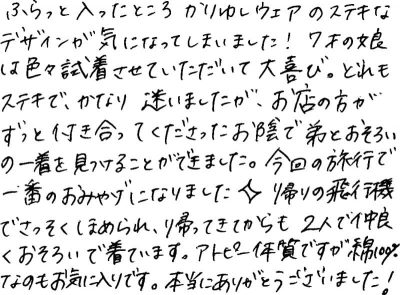 ふらっと入ったところ かりゆしウェアのステキな
デザインが気になってしまいました！ 7才の娘
は色々試着させていただいて大喜び。どれも
ステキで、かなり 迷いましたが、お店の方が
ずっと付き合ってくださったお陰で弟とおそろい
の一着を見つけることができました。今回の旅行で
一番のおみやげになりました✧ 帰りの飛行機
でさっそくほめられ、帰ってきてからも 2人で仲良
くおそろいで着ています。アトピー体質ですが綿100%
なのもお気に入りです。本当にありがとうございました！